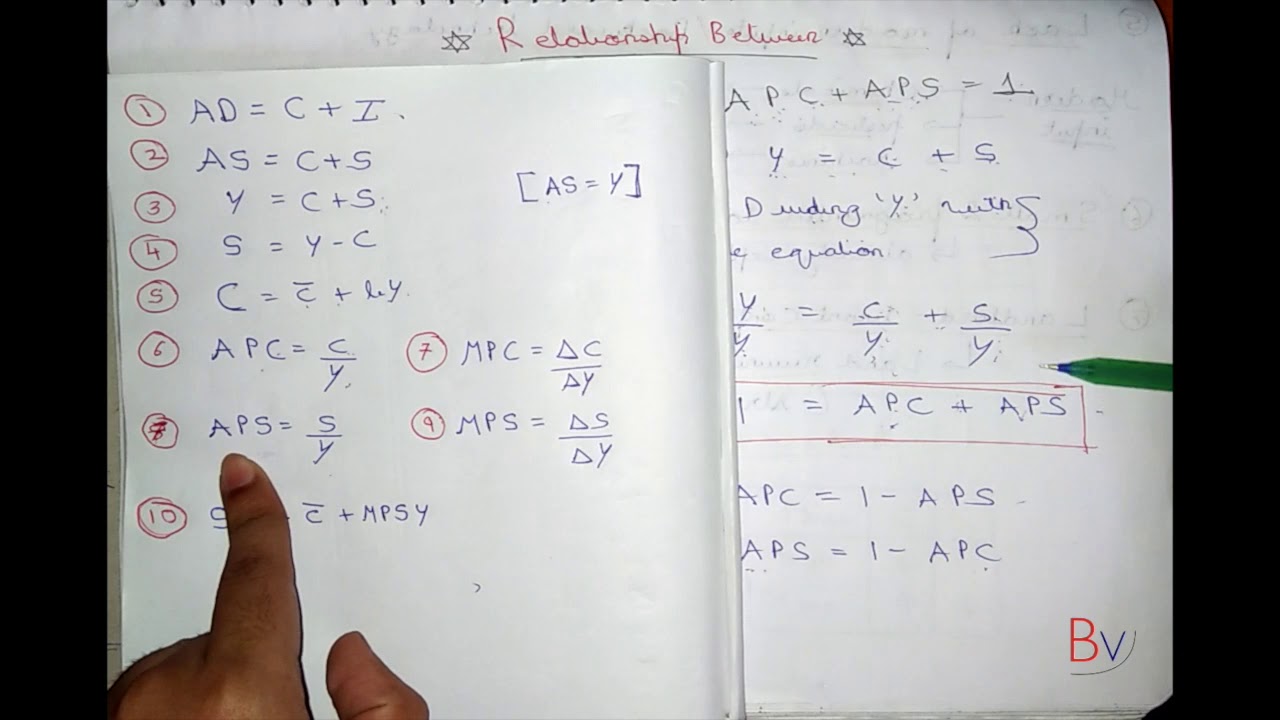 Relationship Between
① AD = C + I.
② AS = C+S
[AS = Y]
③ Y = C+S.
④ S = Y-C
⑤ C = c̄ + by.
⑥ APC = C/Y.
⑦ MPC = ΔC/ΔY
APS = S/Y
⑨ MPS = ΔS/ΔY
⑩ c̄ + MPSY
APC + APS = 1
Y = C + S.
Dividing 'Y.' with
equation
Y/Y = C/Y + S/Y
1 = APC + APS
APC = 1 - APS
APS = 1 - APC
BV